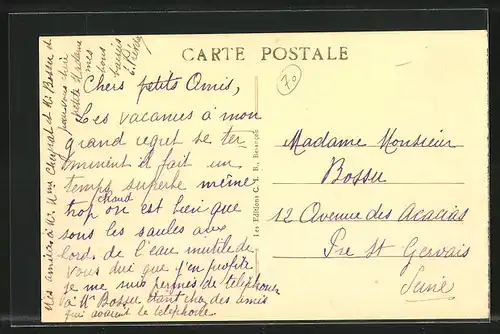 CARTE POSTALE
70
Chers petits Amis,
Les vacances à mon
grand regret se ter
minent il fait un
temps superbe même
trop chaud on est bien que
sous les saules aux
bord de l'eau inutile de
vous dire que j'en profite
je me suis permis de téléphoner
à Mr Bossu étant chez des amis
qui avaient le téléphone.
Mes amitiés à Mr Mme et Mr Bossu et
pour vous chère
petite Madame
mes bons
baisers
Les Editions C. L. B., Besançon
Madame Monsieur
Bossu
12 Avenue des Acacias
Pre St Gervais
Seine